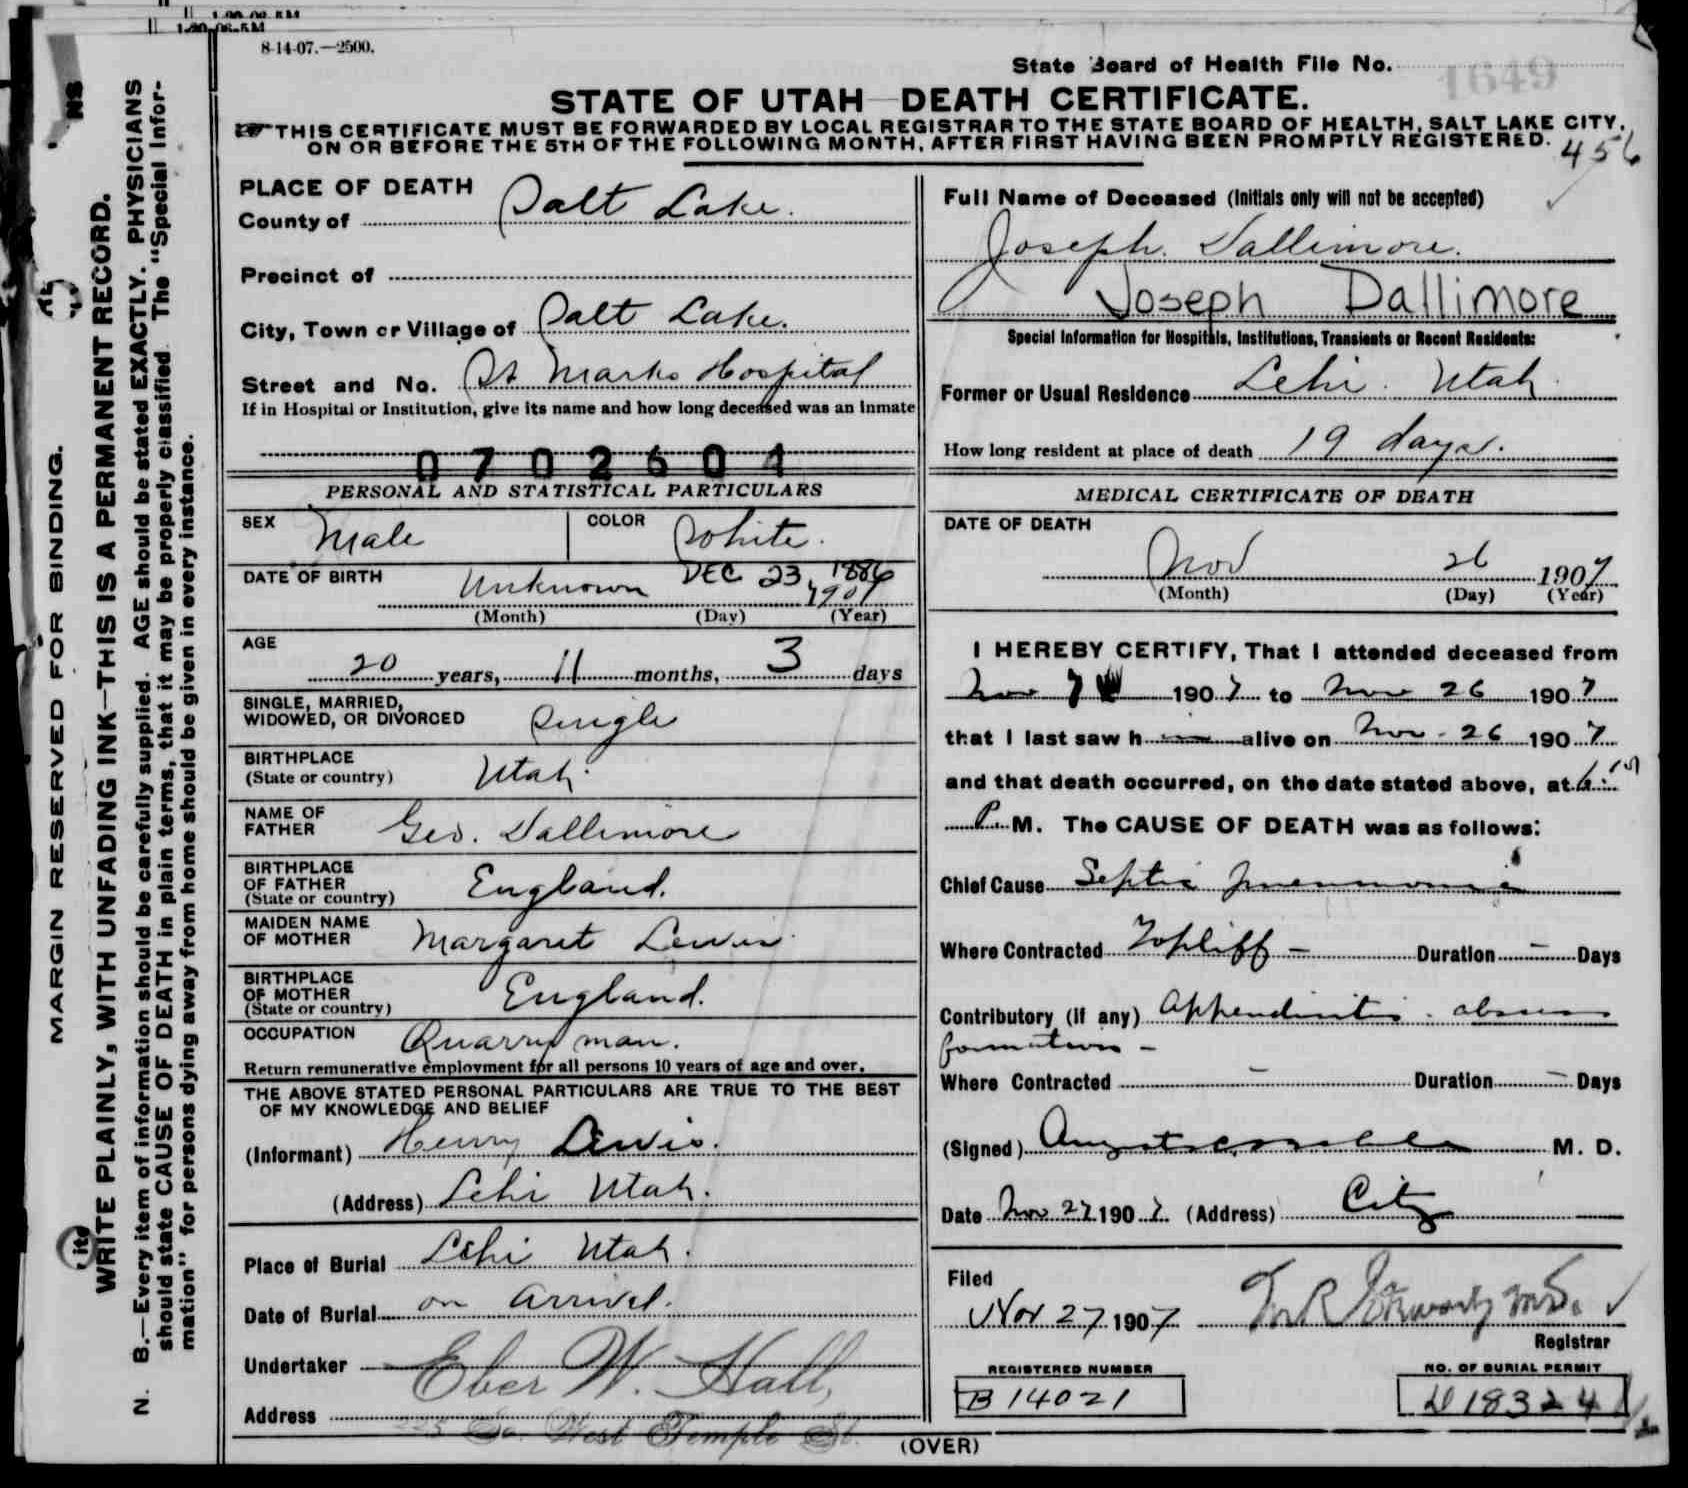 1-20-06-5M
8-14-07.—2500.
State Board of Health File No. 1649
STATE OF UTAH—DEATH CERTIFICATE.
THIS CERTIFICATE MUST BE FORWARDED BY LOCAL REGISTRAR TO THE STATE BOARD OF HEALTH, SALT LAKE CITY,
ON OR BEFORE THE 5TH OF THE FOLLOWING MONTH, AFTER FIRST HAVING BEEN PROMPTLY REGISTERED.
456
MARGIN RESERVED FOR BINDING.
WRITE PLAINLY, WITH UNFADING INK—THIS IS A PERMANENT RECORD.
N. B.—Every item of information should be carefully supplied. AGE should be stated EXACTLY. PHYSICIANS
should state CAUSE OF DEATH in plain terms, that it may be properly classified. The "Special Infor-
mation" for persons dying away from home should be given in every instance.
PLACE OF DEATH
County of Salt Lake.
Precinct of
City, Town or Village of Salt Lake.
Street and No. St Marks Hospital
If in Hospital or Institution, give its name and how long deceased was an inmate
0702604
PERSONAL AND STATISTICAL PARTICULARS
SEX Male COLOR White.
DATE OF BIRTH Unknown DEC 23, 1886
1907
(Month) (Day) (Year)
AGE
20 years, 11 months, 3 days
SINGLE, MARRIED,
WIDOWED, OR DIVORCED Single
BIRTHPLACE
(State or country) Utah.
NAME OF
FATHER Geo. Dallimore
BIRTHPLACE
OF FATHER
(State or country) England.
MAIDEN NAME
OF MOTHER Margaret Lewis.
BIRTHPLACE
OF MOTHER
(State or country) England.
OCCUPATION Quarry man.
Return remunerative employment for all persons 10 years of age and over.
THE ABOVE STATED PERSONAL PARTICULARS ARE TRUE TO THE BEST
OF MY KNOWLEDGE AND BELIEF
(Informant) Henry Lewis.
(Address) Lehi Utah.
Place of Burial Lehi Utah.
Date of Burial on arrival.
Undertaker Eber W. Hall,
Address So. West Temple St.
Full Name of Deceased (Initials only will not be accepted)
Joseph. Dallimore.
Joseph Dallimore
Special Information for Hospitals, Institutions, Transients or Recent Residents:
Former or Usual Residence Lehi. Utah.
How long resident at place of death 19 days.
MEDICAL CERTIFICATE OF DEATH
DATE OF DEATH
Nov 26 1907
(Month) (Day) (Year)
I HEREBY CERTIFY, That I attended deceased from
Nov 7 1907 to Nov 26 1907
that I last saw him alive on Nov. 26 1907
and that death occurred, on the date stated above, at 6:15
P. M. The CAUSE OF DEATH was as follows:
Chief Cause Septic pneumonia
Where Contracted Topliff — Duration — Days
Contributory (if any) Appendicitis. abscess
formation —
Where Contracted — Duration — Days
(Signed) M. D.
Date Nov 27 1907 (Address) City
Filed
Nov 27 1907
Registrar
REGISTERED NUMBER
B 14021
NO. OF BURIAL PERMIT
D 18324
(OVER)